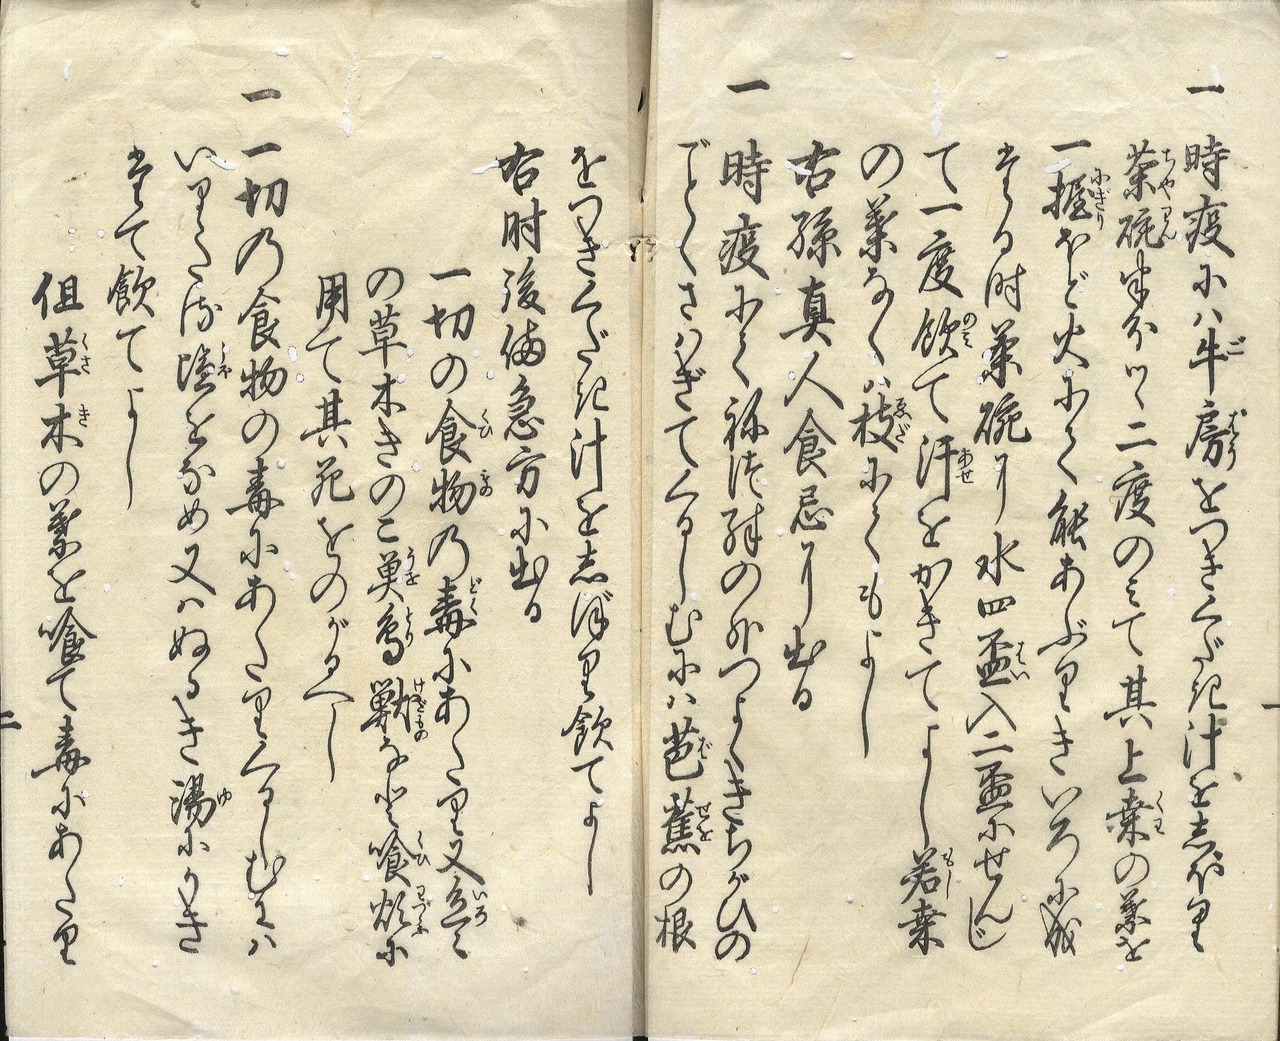 一 時疫にハ牛房をつきくだき汁をしぼり
茶碗半分ツヽ二度のミて其上桑の葉を
一握ほど火にてく能あぶりきいろに成
たる时茶碗ニ水四盃入二盃にせんじ
て一度飲て汗をかきてよし若桑
の葉なくハ枝にてもよし
右孫真人食忌ニ出る
一 時疫にてねつ殊の外つよくきちがひの
ごとくさハぎてくるしむにハ芭蕉の根
をつきくだき汁をしぼり飲てよし
右肘後備急方に出る
一切の食物の毒にあたり又いろ〳〵
の草木きのこ魚鳥獣など喰煩に
用て其死をのがるべし
一 一切の食物の毒にあたりくるしむにハ
いりたる塩をなめ又ハぬるき湯にかき
たて飲てよし
但草木の葉を喰て毒にあたり
二